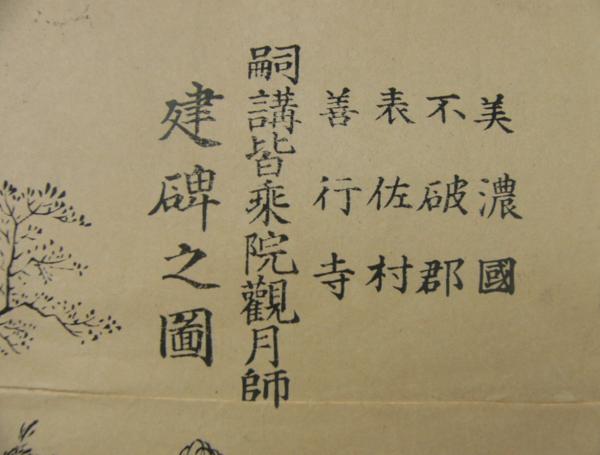 美濃國
不破郡
表佐村
善行寺
嗣講皆乘院觀月師
建碑之圖